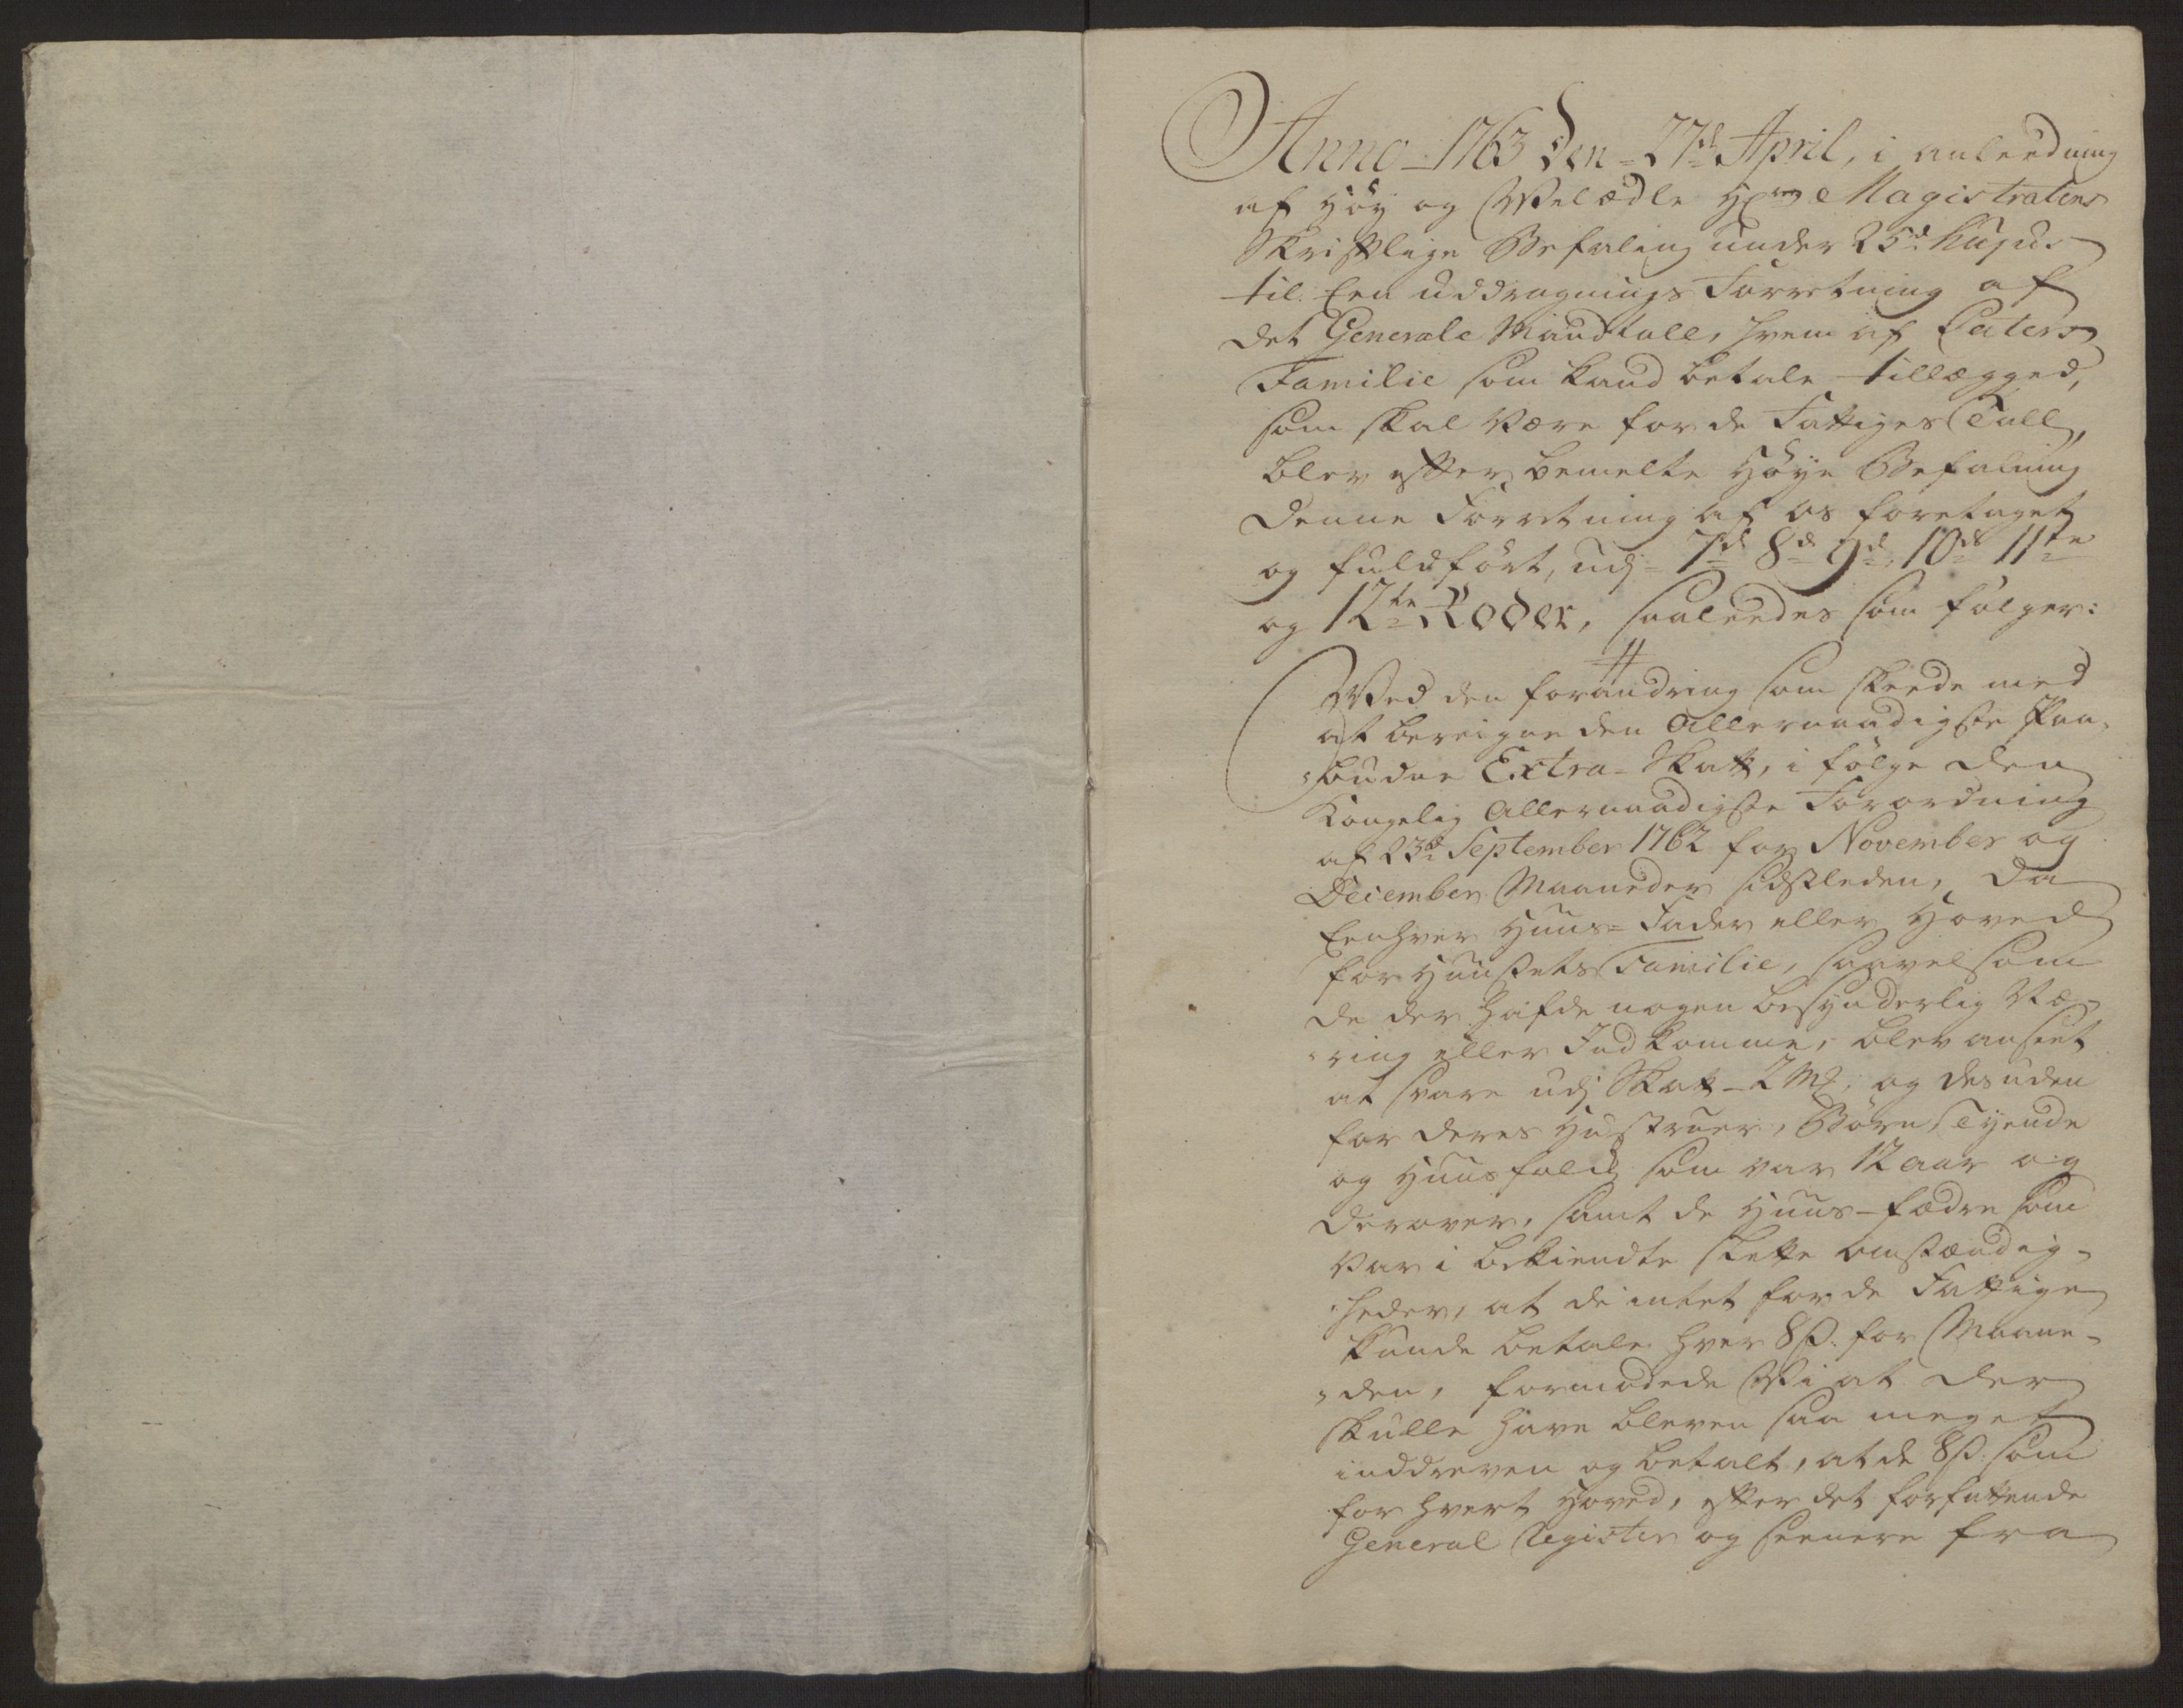 Anno 1763 den 27d April, i anleedning
af Høy og Velædle Hrr Magistratens
Skriftlige Befaling under 25d hujus
til Een uddragnings Forretning af
det Generale Mandtall, hvem af Paters
Familie som kand betale tillægged,
som skal være for de Fattiges Tall,
blev efter bemelte Høye Befalning
denne Forretning af os foretaget
og fuldført, udj 7d 8d 9d 10d 11te
og 12te Roder, saaleedes som følger:
Ved den forandring som skeede med
at bereigne den Allernaadigste Paa-
budne Extra-Skatt, i følge den
Kongelig Allernaadigste Forordning
af 23d September 1762 for November og
December Maaneder sidstleden, da
Eenhver Huus-Fader eller Hoved
for Huusets Familie, saavelsom
de der hafde nogen besynderlig Næ-
ring eller Indkomme, blev anseet
at svare udj Skatt 2 Mk, og desuden
for deres Hustruer, Børn, Tyende
og Huusfolk som var 12 aar og
derover, samt de Huus-fædre som
var i bekiendte slette omstændig-
heder, at de intet for de Fattige
kunde betale hver 8 ß. for Maane-
den, formodede Vi at der
skulle have bleven saa meget
inddreven og betalt, at de 8 ß. som
for hvert Hoved, efter det forfattende
General Register og seenere fra